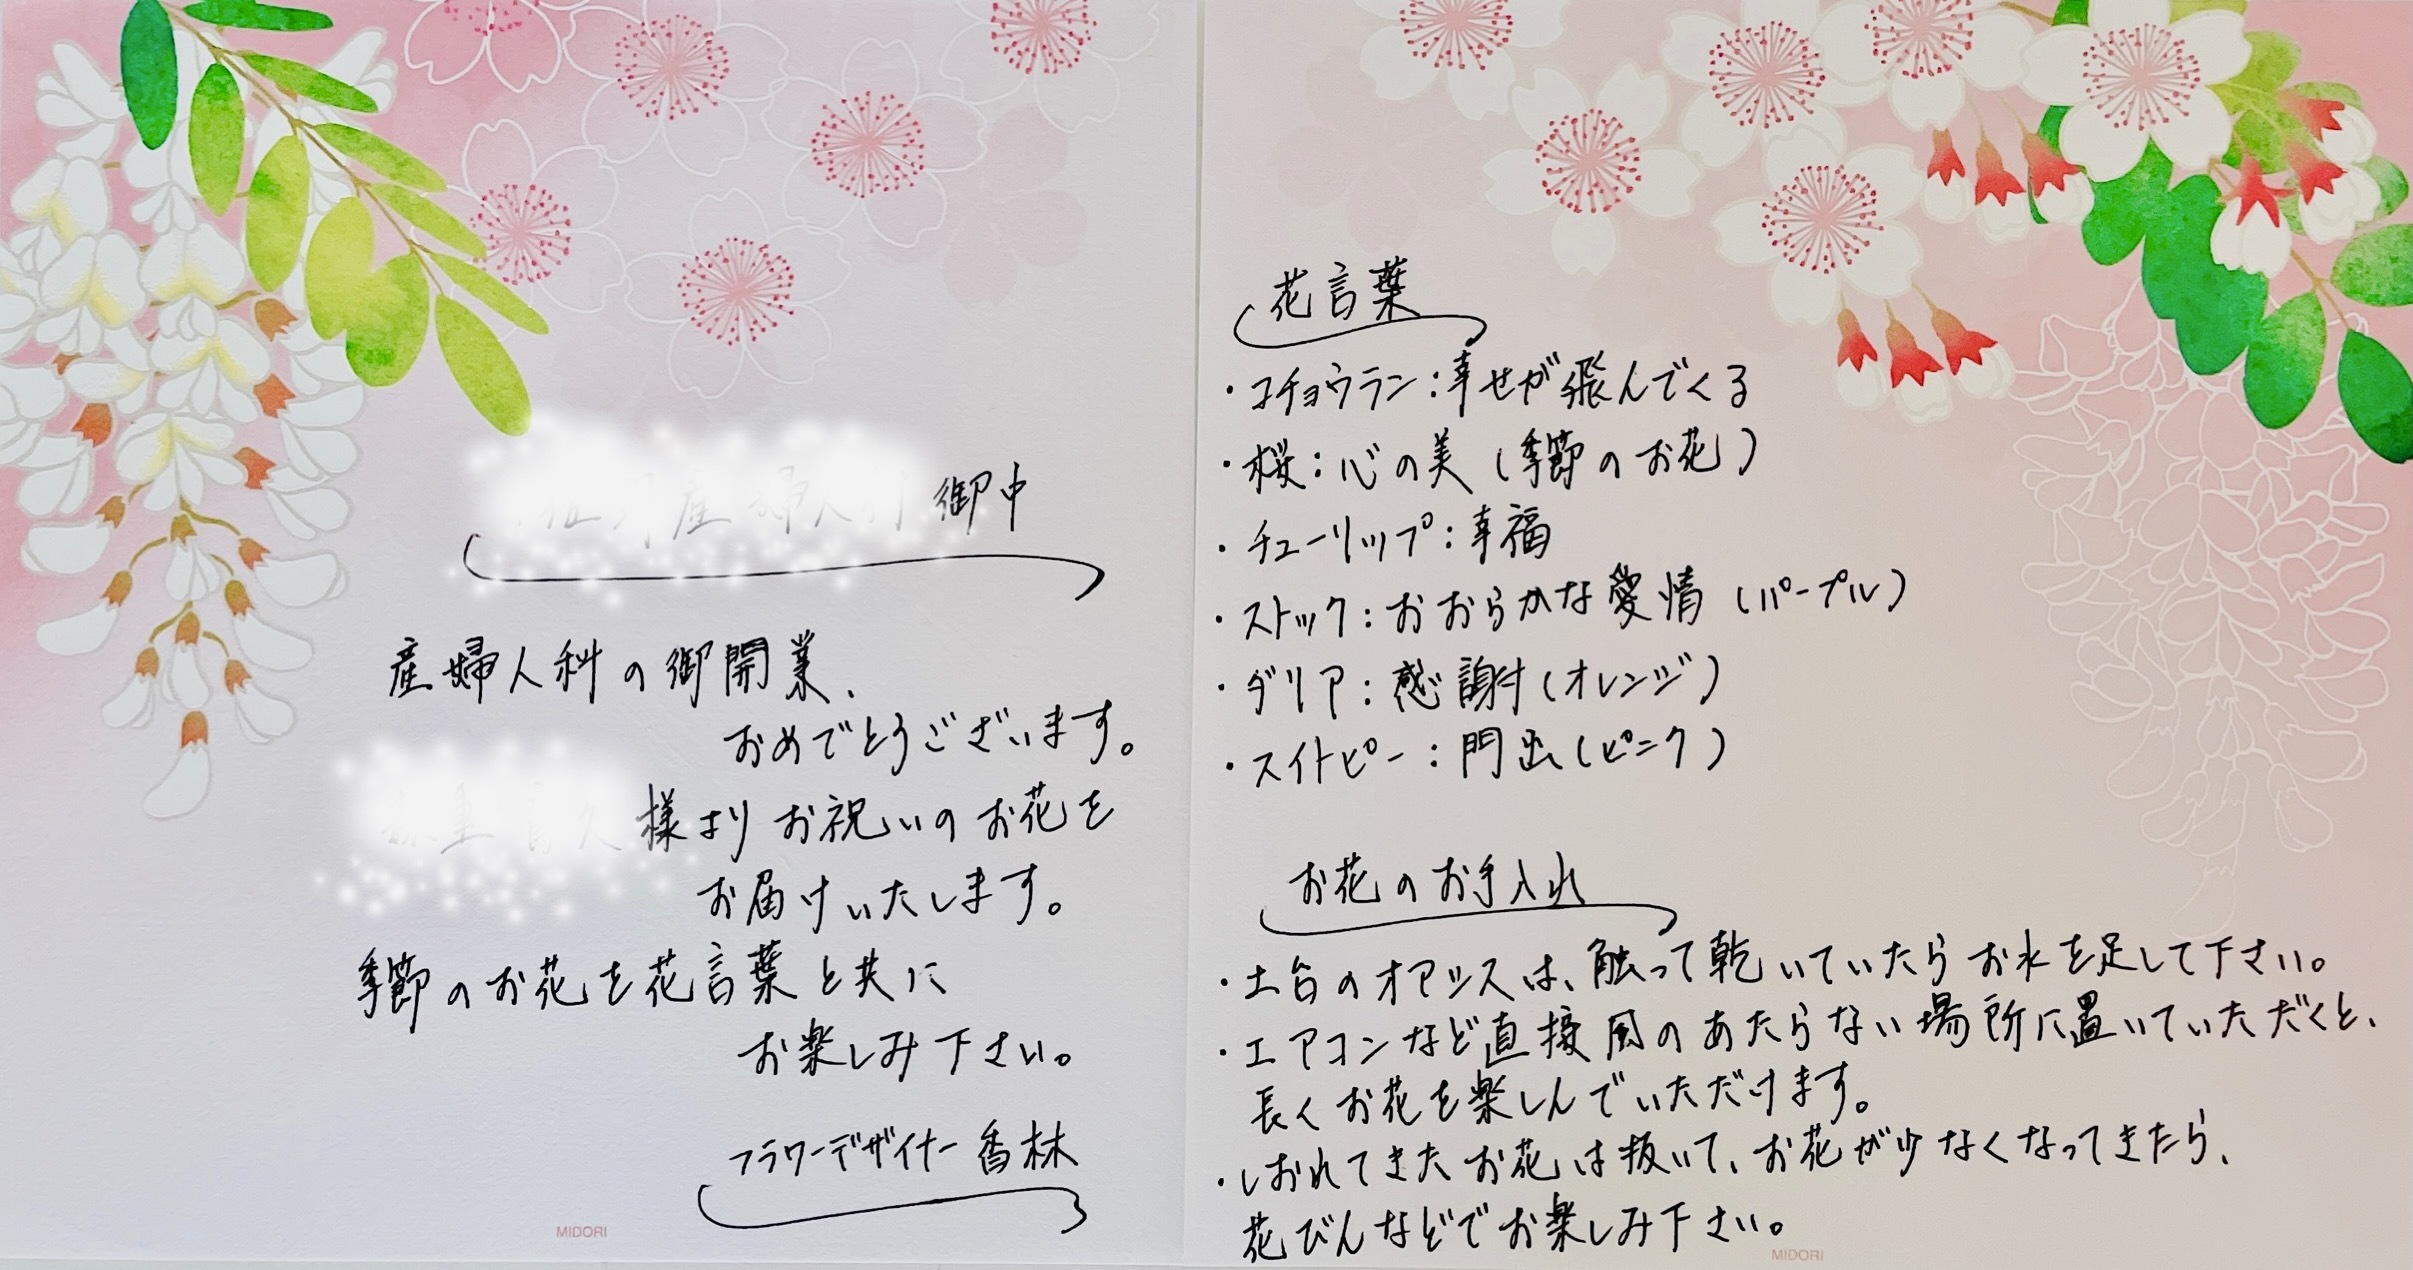 御中
産婦人科の御開業、
おめでとうございます。
様よりお祝いのお花を
お届けいたします。
季節のお花を花言葉と共に
お楽しみ下さい。
フラワーデザイナー香林
MIDORI
花言葉
・コチョウラン:幸せが飛んでくる
・桜:心の美(季節のお花)
・チューリップ:幸福
・ストック:おおらかな愛情(パープル)
・ダリア:感謝(オレンジ)
・スイトピー:門出(ピンク)
お花のお手入れ
・土台のオアシスは、触って乾いていたらお水を足して下さい。
・エアコンなど直接風のあたらない場所に置いていただくと、
長くお花を楽しんでいただけます。
・しおれてきたお花は抜いて、お花が少なくなってきたら、
花びんなどでお楽しみ下さい。
MIDORI